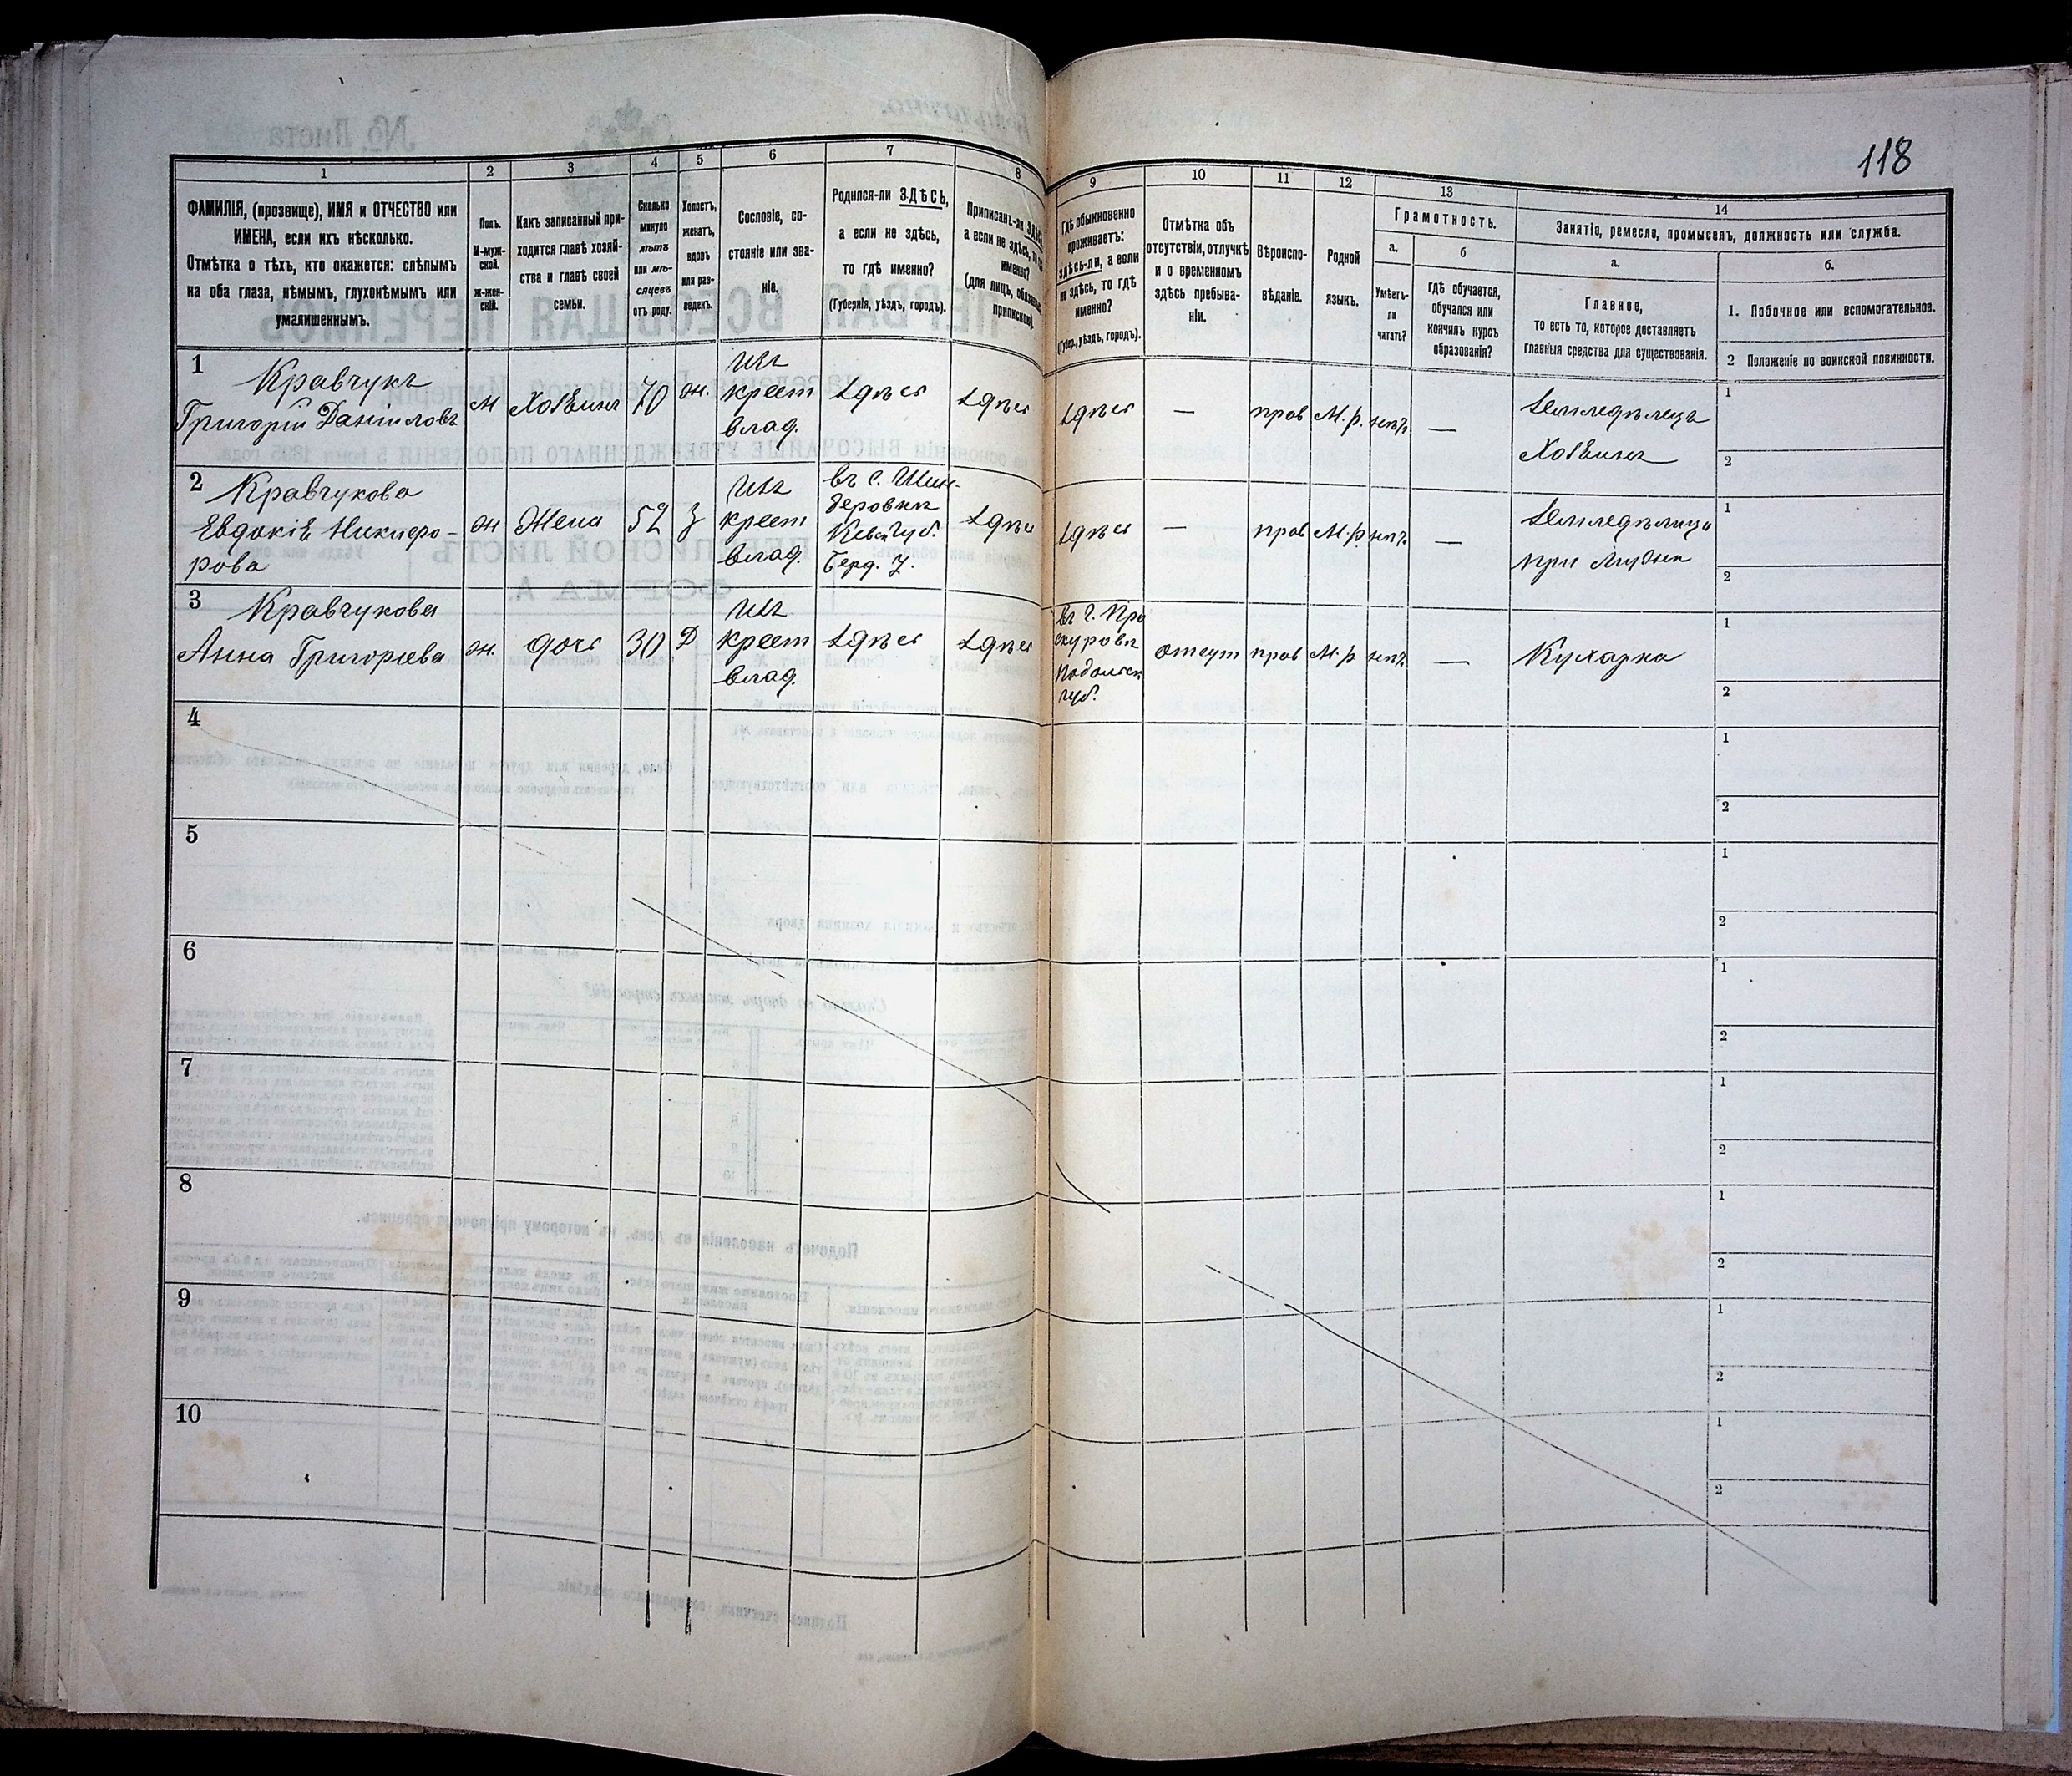 118
1
2
3
4
5
6
7
8
9
10
11
12
13
14
ФАМИЛІЯ, (прозвище), ИМЯ и ОТЧЕСТВО или
ИМЕНА, если ихъ нѣсколько.
Отмѣтка о тѣхъ, кто окажется: слѣпымъ
на оба глаза, нѣмымъ, глухонѣмымъ или
умалишеннымъ.
Полъ.
М-муж-
ской.
Ж-жен-
скій.
Какъ записанный при-
ходится главѣ хозяй-
ства и главѣ своей
семьи.
Сколько
минуло
лѣтъ
или мѣ-
сяцевъ
отъ роду.
Холостъ,
женатъ,
вдовъ
или раз-
веденъ.
Сословіе, со-
стояніе или зва-
ніе.
Родился-ли ЗДѢСЬ,
а если не здѣсь,
то гдѣ именно?
(Губернія, уѣздъ, городъ).
Приписанъ-ли
а если не здѣсь,
именно?
(для лицъ,
припискою).
Гдѣ обыкновенно
проживаетъ:
здѣсь-ли, а если
не здѣсь, то гдѣ
именно?
(Губер., уѣздъ, городъ).
Отмѣтка объ
отсутствіи, отлучкѣ
и о временномъ
здѣсь пребыва-
ніи.
Вѣроиспо-
вѣданіе.
Родной
языкъ.
Грамотность.
а.
б
Умѣетъ-
ли
читать?
гдѣ обучается,
обучался или
кончилъ курсъ
образованія?
Занятіе, ремесло, промыселъ, должность или служба.
а.
б.
Главное,
то есть то, которое доставляетъ
главныя средства для существованія.
1. Побочное или вспомогательное.
2 Положеніе по воинской повинности.
1
Кравчукъ
Григорій Даніиловъ
м
Хозяинъ
70
ж.
изъ
крест
влад.
здѣсь
здѣсь
здѣсь
—
прав
М.р.
нѣтъ
—
Земледѣлецъ
Хозяинъ
1
2
2
Кравчукова
Евдокія Никифо-
рова
ж
Жена
52
З
изъ
крест
влад.
въ с. Шен-
деровки
Кіев. Губ.
Берд. У.
здѣсь
здѣсь
—
прав
М.р
нѣтъ
—
при мужѣ
1
2
3
Кравчукова
Анна Григоріева
ж.
дочь
30
Д
изъ
крест
влад.
здѣсь
здѣсь
въ г. Про
скуровѣ
Подольск
губ.
отсут
прав
М.р
нѣтъ
—
Кухарка
1
2
4
1
2
5
1
2
6
1
2
7
1
2
8
1
2
9
1
2
10
1
2